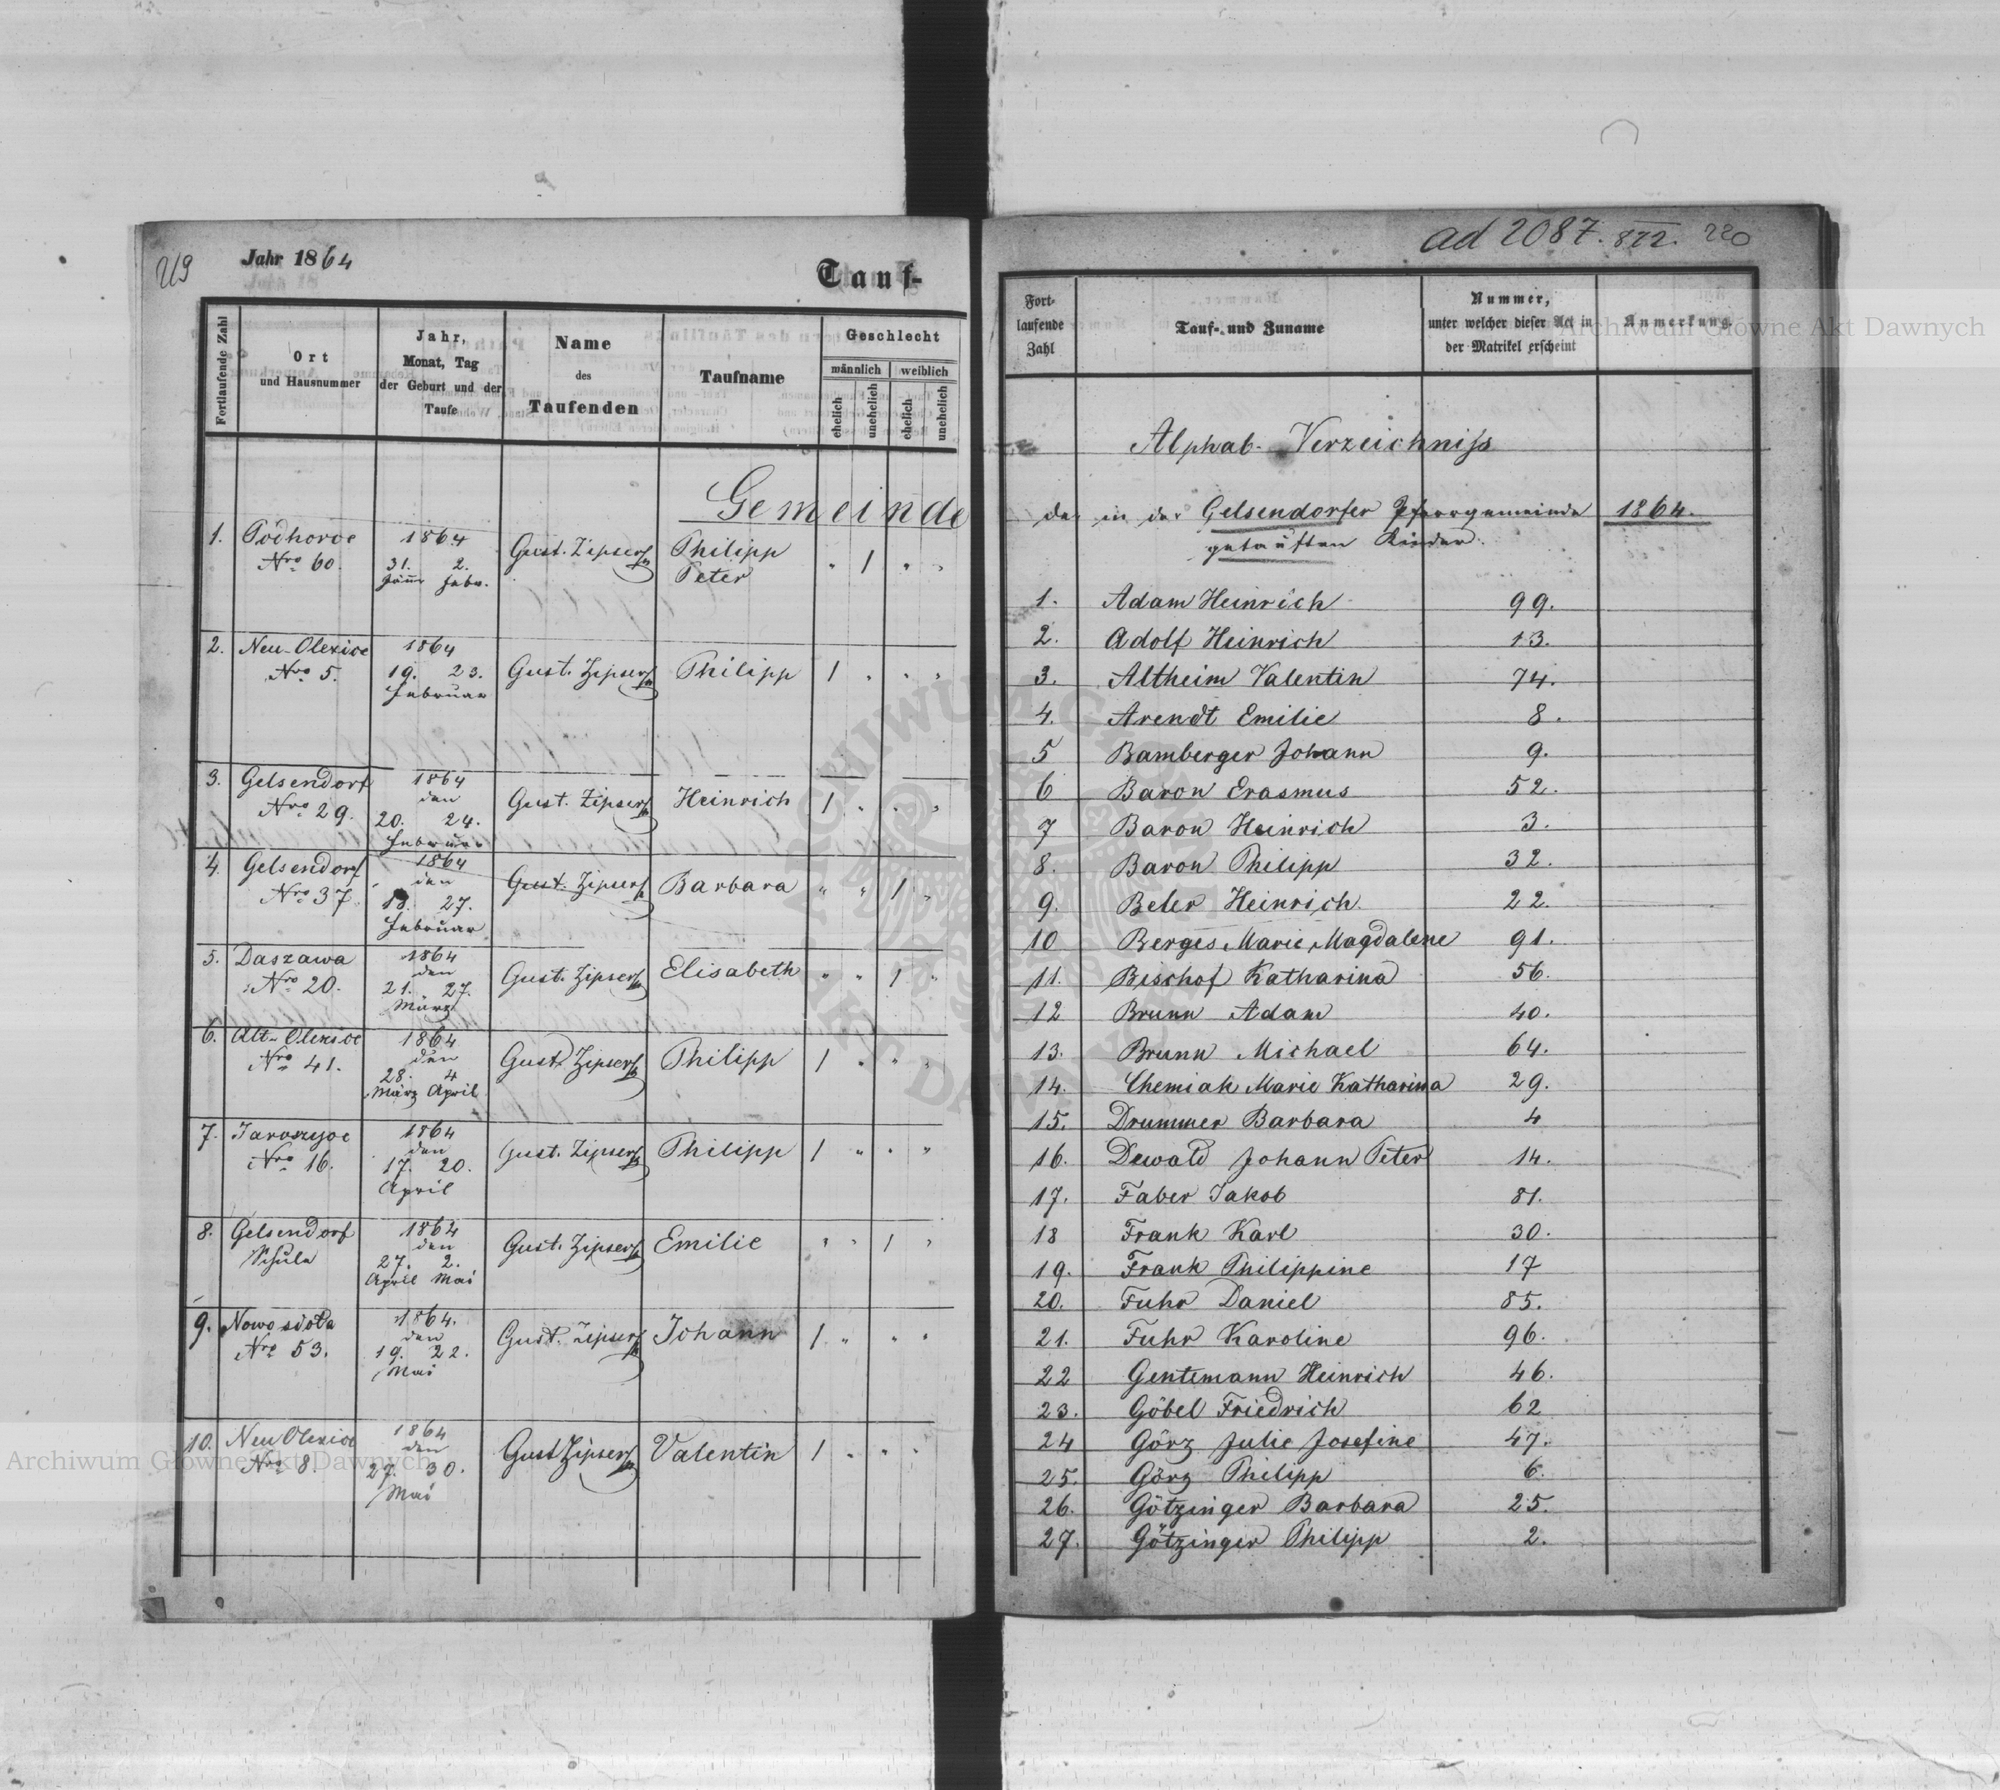 219
Jahr 1864
Tauf-
Fortlaufende Zahl
Ort
und Hausnummer
Jahr,
Monat, Tag
der Geburt und der
Taufe
Name
des
Taufenden
Taufname
Geschlecht
männlich
weiblich
ehelich
unehelich
ehelich
unehelich
Gemeinde
1. Podhorce 1864 Gust. Zipser Philipp
Nro 60. 31. 2. Peter " 1 " "
Jänn Febr.
2. Neu-Olexice 1864
Nro 5. 19. 23. Gust. Zipser Philipp 1 " " "
Februar
3. Gelsendorf 1864
Nro 29. den Gust. Zipser Heinrich 1 " " "
20. 24.
Februar
4. Gelsendorf 1864
Nro 37 den Gust. Zipser Barbara " " 1 "
18. 27.
Februar
5. Daszawa 1864
Nro 20. den Gust. Zipser Elisabeth " " 1 "
21. 27.
März
6. Alt-Olexice 1864
Nro 41. den Gust. Zipser Philipp 1 " " "
28. 4
März April
7. Jaroszyce 1864
Nro 16. den Gust. Zipser Philipp 1 " " "
17. 20.
April
8. Gelsendorf 1864
Schule den Gust. Zipser Emilie " " 1 "
27. 2.
April Mai
9. Nowosdola 1864.
Nro 53. den Gust. Zipser Johann 1 " " "
19. 22.
Mai
10. Neu Olexice 1864
Nro 8. den Gust Zipser Valentin 1 " " "
27. 30.
Mai
ad 2087. 872. 220
Fort-
laufende
Zahl
Tauf- und Zuname
Nummer,
unter welcher dieser Act in
der Matrikel erscheint
Anmerkung.
Alphab. Verzeichniss
der in der Gelsendorfer Pfarrgemeinde 1864.
getauften Kinder.
1. Adam Heinrich 99.
2. Adolf Heinrich 13.
3. Altheim Valentin 74.
4. Arendt Emilie 8.
5 Bamberger Johann 9.
6 Baron Erasmus 52.
7 Baron Heinrich 3.
8. Baron Philipp 32.
9. Beler Heinrich 22.
10 Berges Marie Magdalene 91.
11. Bischof Katharina 56.
12 Brunn Adam 40.
13. Brunn Michael 64.
14. Chemiak Marie Katharina 29.
15. Drummer Barbara 4
16. Dewald Johann Peter 14.
17. Faber Jakob 81.
18 Frank Karl 30.
19. Frank Philippine 17
20. Fuhr Daniel 85.
21. Fuhr Karoline 96.
22 Gentemann Heinrich 46.
23. Göbel Friedrich 62
24 Görz Julie Josefine 47.
25. Görz Philipp 6.
26. Götzinger Barbara 25.
27. Götzinger Philipp 2.
Archiwum Główne Akt Dawnych
Archiwum Główne Akt Dawnych
ARCHIWUM GŁÓWNE AKT DAWNYCH